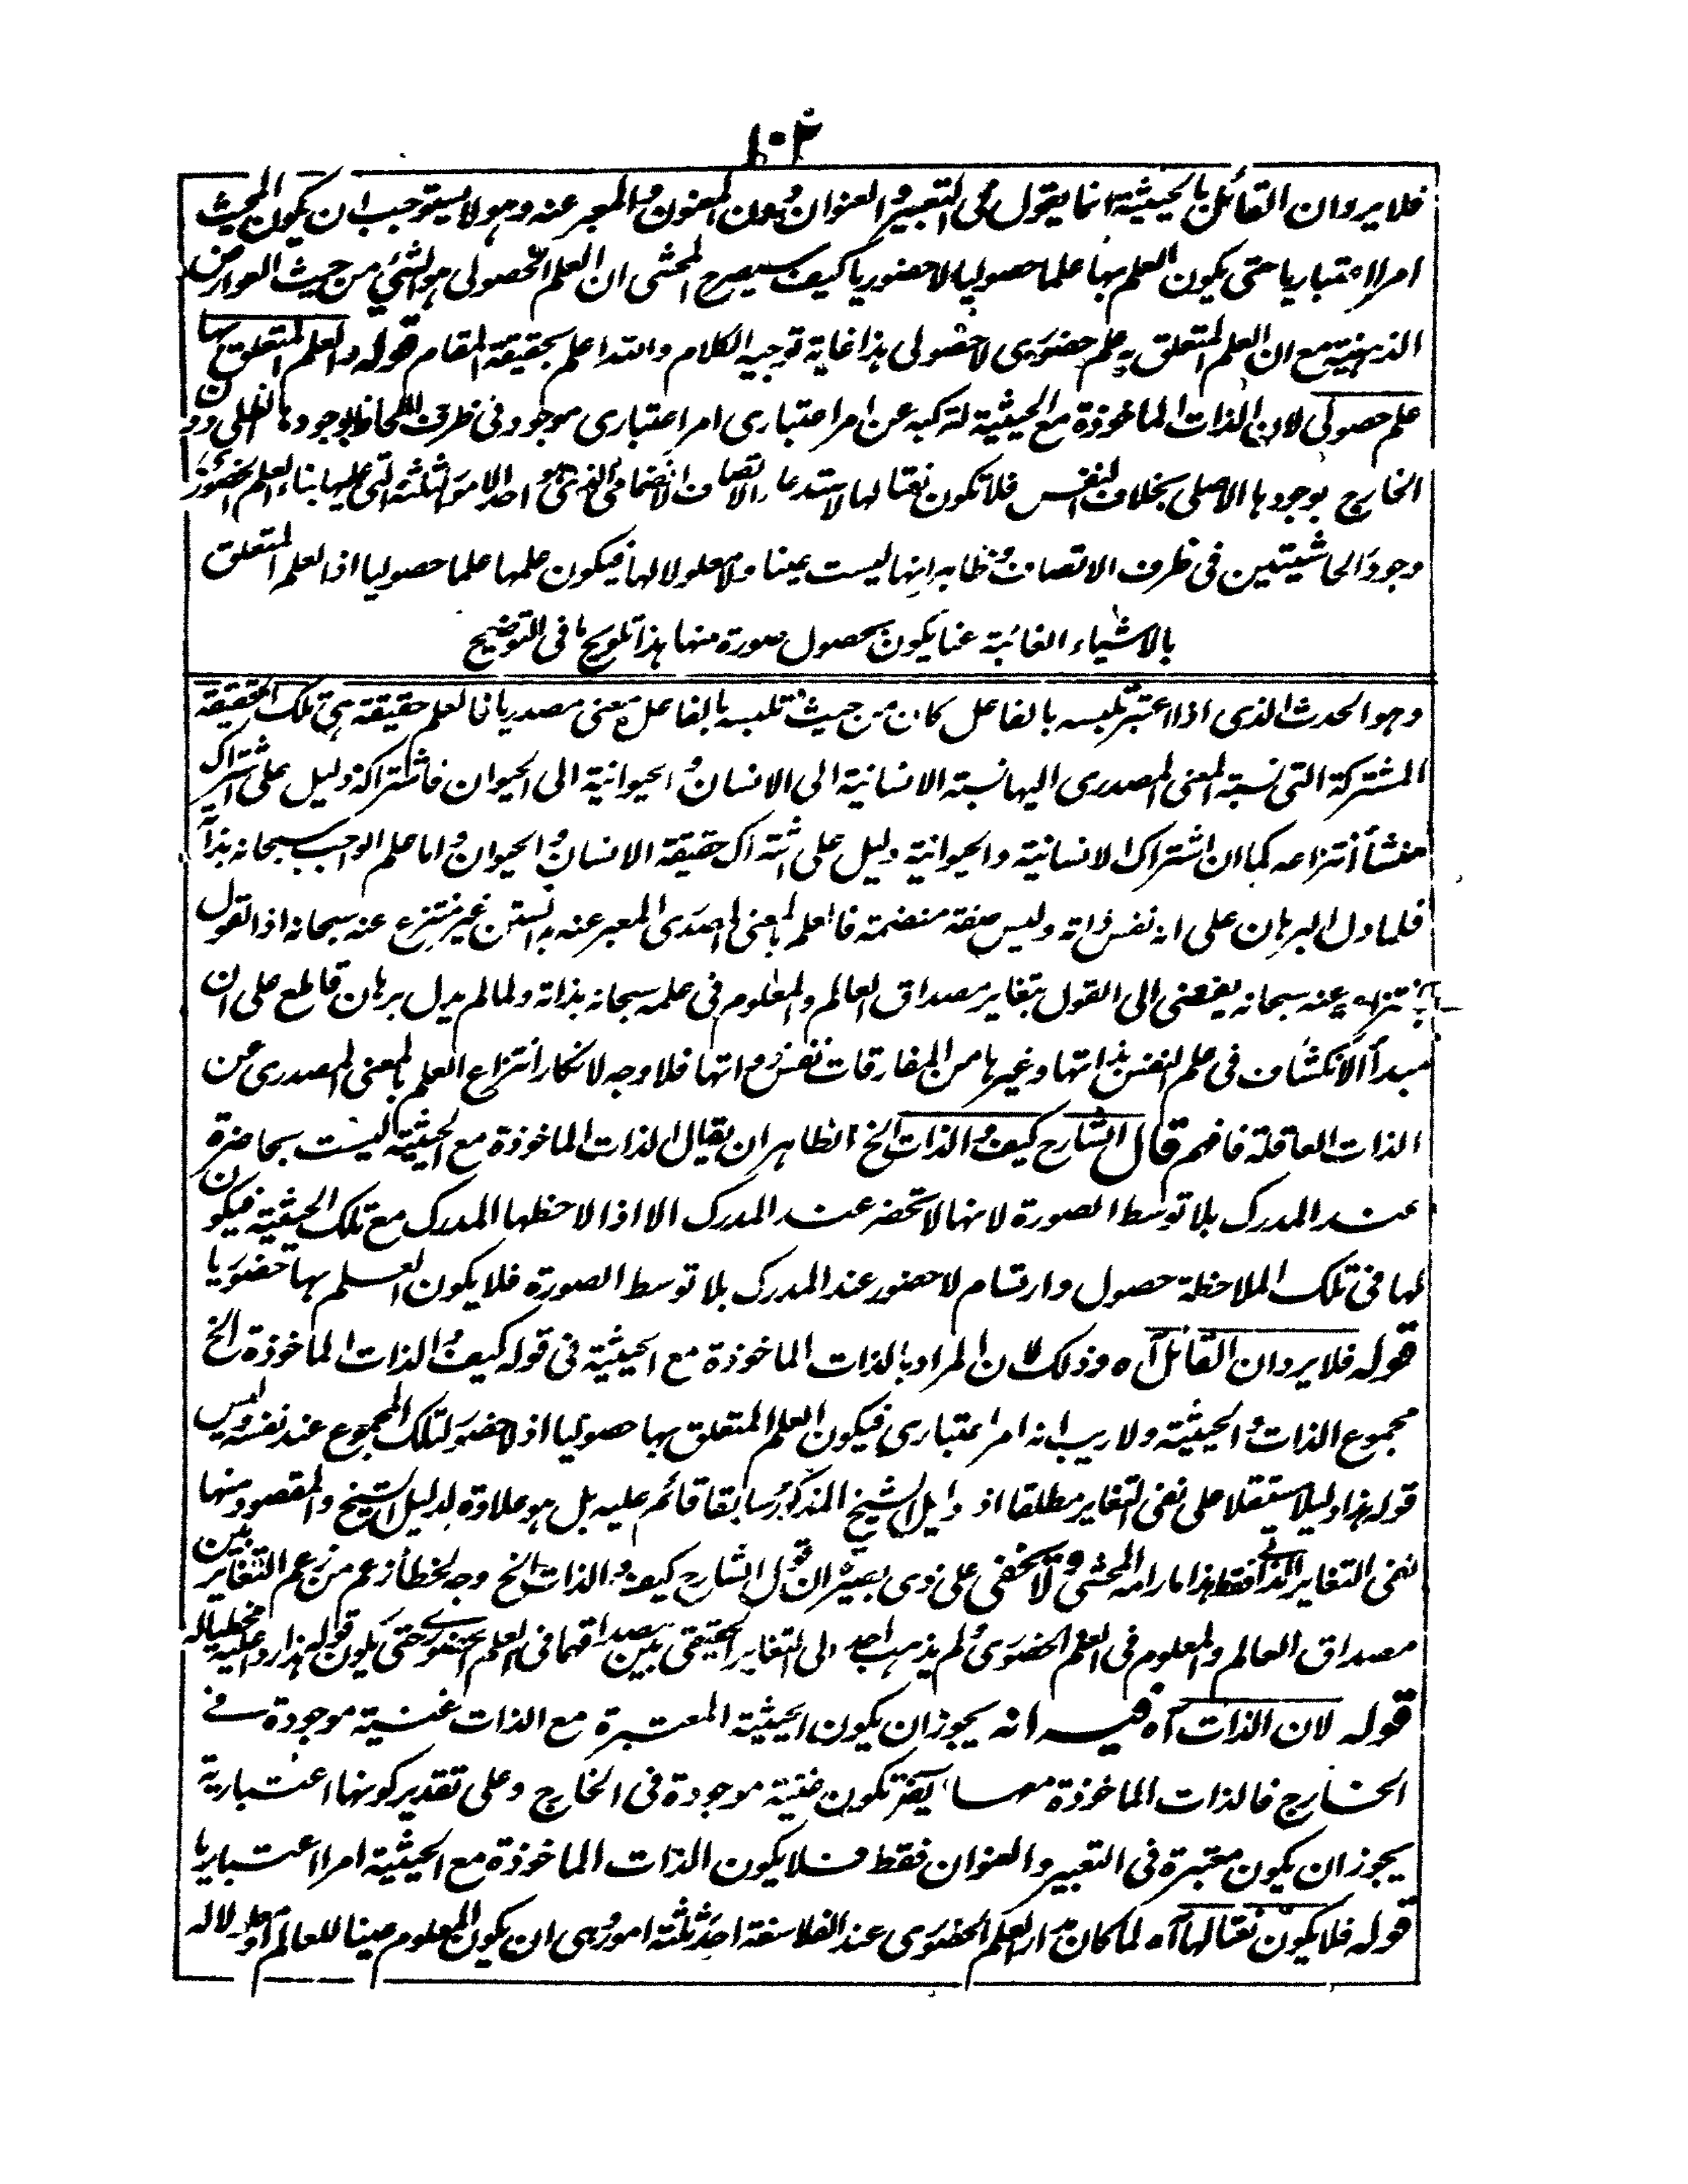 ١٠٢
فلا يرد ان القائل بالحيثية انما يقول فى التعبير والعنوان دون المعنون والمعبر عنه وهو لا يستوجب ان يكون المحيث
امرا اعتباريا حتى يكون العلم بها علما حصوليا لا حضوريا كيف سيصرح المحشى ان العلم الحصولى هو الشئ من حيث العوارض
الذهنية مع ان العلم المتعلق به علم حضورى لا حصولى هذا غاية توجيه الكلام والله اعلم بحقيقة المقام قوله والعلم المتعلق بها
علم حصولى لان الذات الماخوذة مع الحيثية لتركبه عن امر اعتبارى امر اعتبارى موجود فى ظرف اللحاظ بوجودها الظلى دون
الخارج بوجودها الاصلى بخلاف النفس فلا تكون نعتا لها لاستدعاء الاتصاف الانضمامى الذى هو احد الامور الثلثة التى عليها بناء العلم الحضورى
وجود الحاشيتين فى ظرف الاتصاف وظاهر انها ليست عينا ولا معلولا لها فيكون علمها علما حصوليا اذ العلم المتعلق
بالاشياء الغائبة عنا يكون بحصول صورة منها هذا تلويح ما فى التوضيح
وهو الحدث الذى اذا اعتبر تلبسه بالفاعل كان من حيث تلبسه بالفاعل معنى مصدريا فالعلم حقيقة هى تلك الحقيقة
المشتركة التى نسبة المعنى المصدرى اليها نسبة الانسانية الى الانسان والحيوانية الى الحيوان فاشتراكه دليل على اشتراك
منشأ انتزاعه كما ان اشتراك الانسانية والحيوانية دليل على اشتراك حقيقة الانسان والحيوان واما علم الواجب سبحانه بذاته
فلما دل البرهان على انه نفس ذاته وليس صفة منضمة فالعلم بالمعنى المصدرى المعبر عنه بدانستن غير منتزع عنه سبحانه اذ القول
بانتزاعه عنه سبحانه يفضى الى القول بتغاير مصداق العالم والمعلوم فى علمه سبحانه بذاته ولما لم يدل برهان قاطع على ان
مبدأ الانكشاف فى علم النفس بذاتها وغيرها من المفارقات نفس ذواتها فلا وجه لانكار انتزاع العلم بالمعنى المصدرى عن
الذات العاقلة فافهم قال الشارح كيف والذات الخ الظاهر ان يقال الذات الماخوذة مع الحيثية ليست بحاضرة
عند المدرك بلا توسط الصورة لانها لا تحضر عند المدرك الا اذا لاحظها المدرك مع تلك الحيثية فيكون
لها فى تلك الملاحظة حصول وارتسام لا حضور عند المدرك بلا توسط الصورة فلا يكون العلم بها حضوريا
قوله فلا يرد ان القائل آه وذلك لان المراد بالذات الماخوذة مع الحيثية فى قوله كيف والذات الماخوذة الخ
مجموع الذات والحيثية ولا ريب انه امر اعتبارى فيكون العلم المتعلق بها حصوليا اذ لا حضور لتلك المجموع عند نفسه وليس
قوله هذا دليلا مستقلا على نفى التغاير مطلقا اذ دليل الشيخ المذكور سابقا قائم عليه بل هو علاوة لدليل الشيخ والمقصود منها
نفى التغاير الذاتى فقط هذا ما رامه المحشى ولا يخفى على ذى بصيرة ان قول الشارح كيف والذات الخ وجه لخطأ زعم من زعم التغاير بين
مصداق العالم والمعلوم فى العلم الحضورى ولم يذهب احد الى التغاير الحقيقى بين مصداقهما فى العلم الحضورى حتى يكون قوله هذا ردا عليه
قوله لان الذات آه فيه انه يجوز ان يكون الحيثية المعتبرة مع الذات عينية موجودة فى
الخارج فالذات الماخوذة معها ايضا تكون عينية موجودة فى الخارج وعلى تقدير كونها اعتبارية
يجوز ان يكون معتبرة فى التعبير والعنوان فقط فلا يكون الذات الماخوذة مع الحيثية امرا اعتباريا
قوله فلا يكون نعتا لها آه لما كان مدار العلم الحضورى عند الفلاسفة احد ثلثة امور هى ان يكون المعلوم عينا للعالم او معلولا له